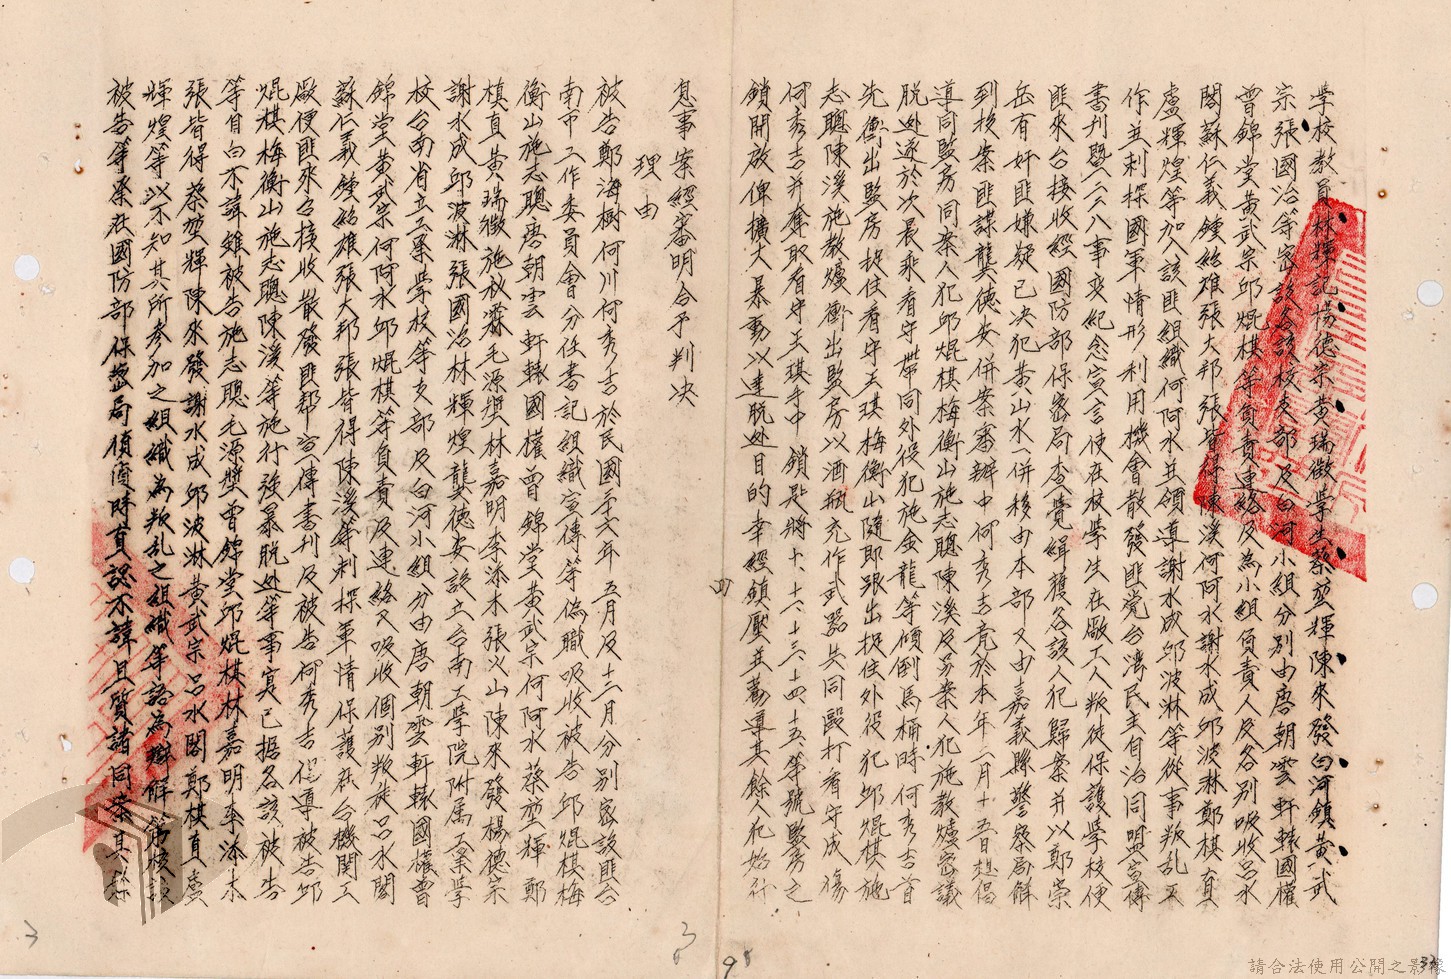 學校教員林輝記楊德宗黃瑞徵學生蔡堃輝陳來發白河鎮黃武
宗張國治等密設各該校支部及白河小組分別由唐朝雲軒轅國權
曾錦堂黃武宗邱焜棋等負責連絡及為小組負責人及各別吸收呂水
閣蘇仁義鍾紿雄張大邦張皆得陳溪何阿水謝水成邱波淋鄭棋真
盧輝煌等加入該匪組織何阿水並領導謝水成邱波淋等從事叛乱工
作並刺探國軍情形利用機會散發匪党台灣民主自治同盟宣傳
書刊暨二二八事变紀念宣言使在校學生在廠工人叛徒保護學校便
匪來台接收經國防部保密局查覺緝獲各該人犯歸案并以鄭崇
岳有奸匪嫌疑已决犯黃山水一併移由本部又由嘉義縣警察局解
到投案匪諜龔德安併案審辦中何秀吉竟於本年二月十五日想倡
導同監房同案人犯邱焜棋梅衡山施志聰陳溪及另案人犯施教爐密議
脱逃遂於次晨乘看守帶同外役犯施金龍等傾倒馬桶時何秀吉首
先衝出監房扠住看守王琪梅衡山隨即跟出捉住外役犯邱焜棋施
志聰陳溪施教爐衝出監房以酒瓶充作武器共同毆打看守成傷
何秀吉并奪取看守王琪手中鎖匙將十、十一、十三、十四、十五、等號監房之
鎖開啟俾擴大暴動以達脱逃目的幸經鎮壓並勸導其餘人犯始行
四
息事案經審明合予判决
理由
被告鄭海樹何川何秀吉於民國三十六年五月及十二月分別密設匪台
南市工作委員會分任書記組織宣傳等偽職吸收被告邱焜棋梅
衡山施志聰唐朝雲軒轅國權曾錦堂黃武宗何阿水蔡堃輝鄭
楨真黃瑞徵施秋霖毛源奬林嘉明李添木張火山陳來發楊德宗
謝水成邱波淋張國治林輝煌龔德安設立台南工學院附属工業學
校台南省立工業學校等支部及白河小組分由唐朝雲軒轅國權曾
錦堂黃武宗何阿水邱焜棋等負責及連絡又吸收個別叛徒呂水閣
蘇仁義鍾紿雄張大邦張皆得陳溪等刺探軍情保護在台機関工
廠便匪來台接收散發匪幫宣傳書刊及被告何秀吉倡導被告邱
焜棋梅衡山施志聰陳溪等施行強暴脱逃等事寔已据各該被告
等自白不諱雖被告施志聰毛源奬曾錦堂邱焜棋林嘉明李添木
張皆得蔡堃輝陳來發謝水成邱波淋黃武宗呂水閣鄭棋真盧
輝煌等以不知其所参加之組織為叛乱之組織等語為辯解第核該
被告等系在國防部保密局偵濳時直認不諱且質諸同案其餘